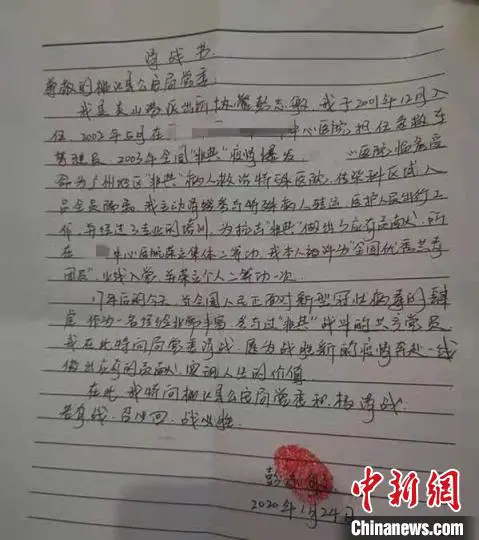 请战书
尊敬的枞江县公安局党委：
我是夹山派出所协警彭志敏，我于2001年12月入
伍，2002年5月在 中心医院担任急救车
驾驶员，2003年全国"非典"疫情爆发， 医院临危受
命为广州地区"非典"病人救治特殊医院，传染科区域人
员全员隔离，我主动
作，并经过了专业的培训，为抗击"非典"做出了应有贡献，所
在 中心医院荣立集体二等功，我本人被评为"全国优秀共青
团员"，火线入党，并荣立个人二等功一次。
17年后的今天，当全国人民正面对新型冠状病毒的肆
虐，作为一名经验丰富，参与过"非典"战斗的共产党员，
我在此特向局党委请战，愿为战胜新的疫情奔赴一线，
做出应有的贡献，实现人生的价值。
在此，我特向 县公安局党委积极请战，
若有战，召必回，战必胜。
彭
2020年1月24日
中新网
Chinanews.com